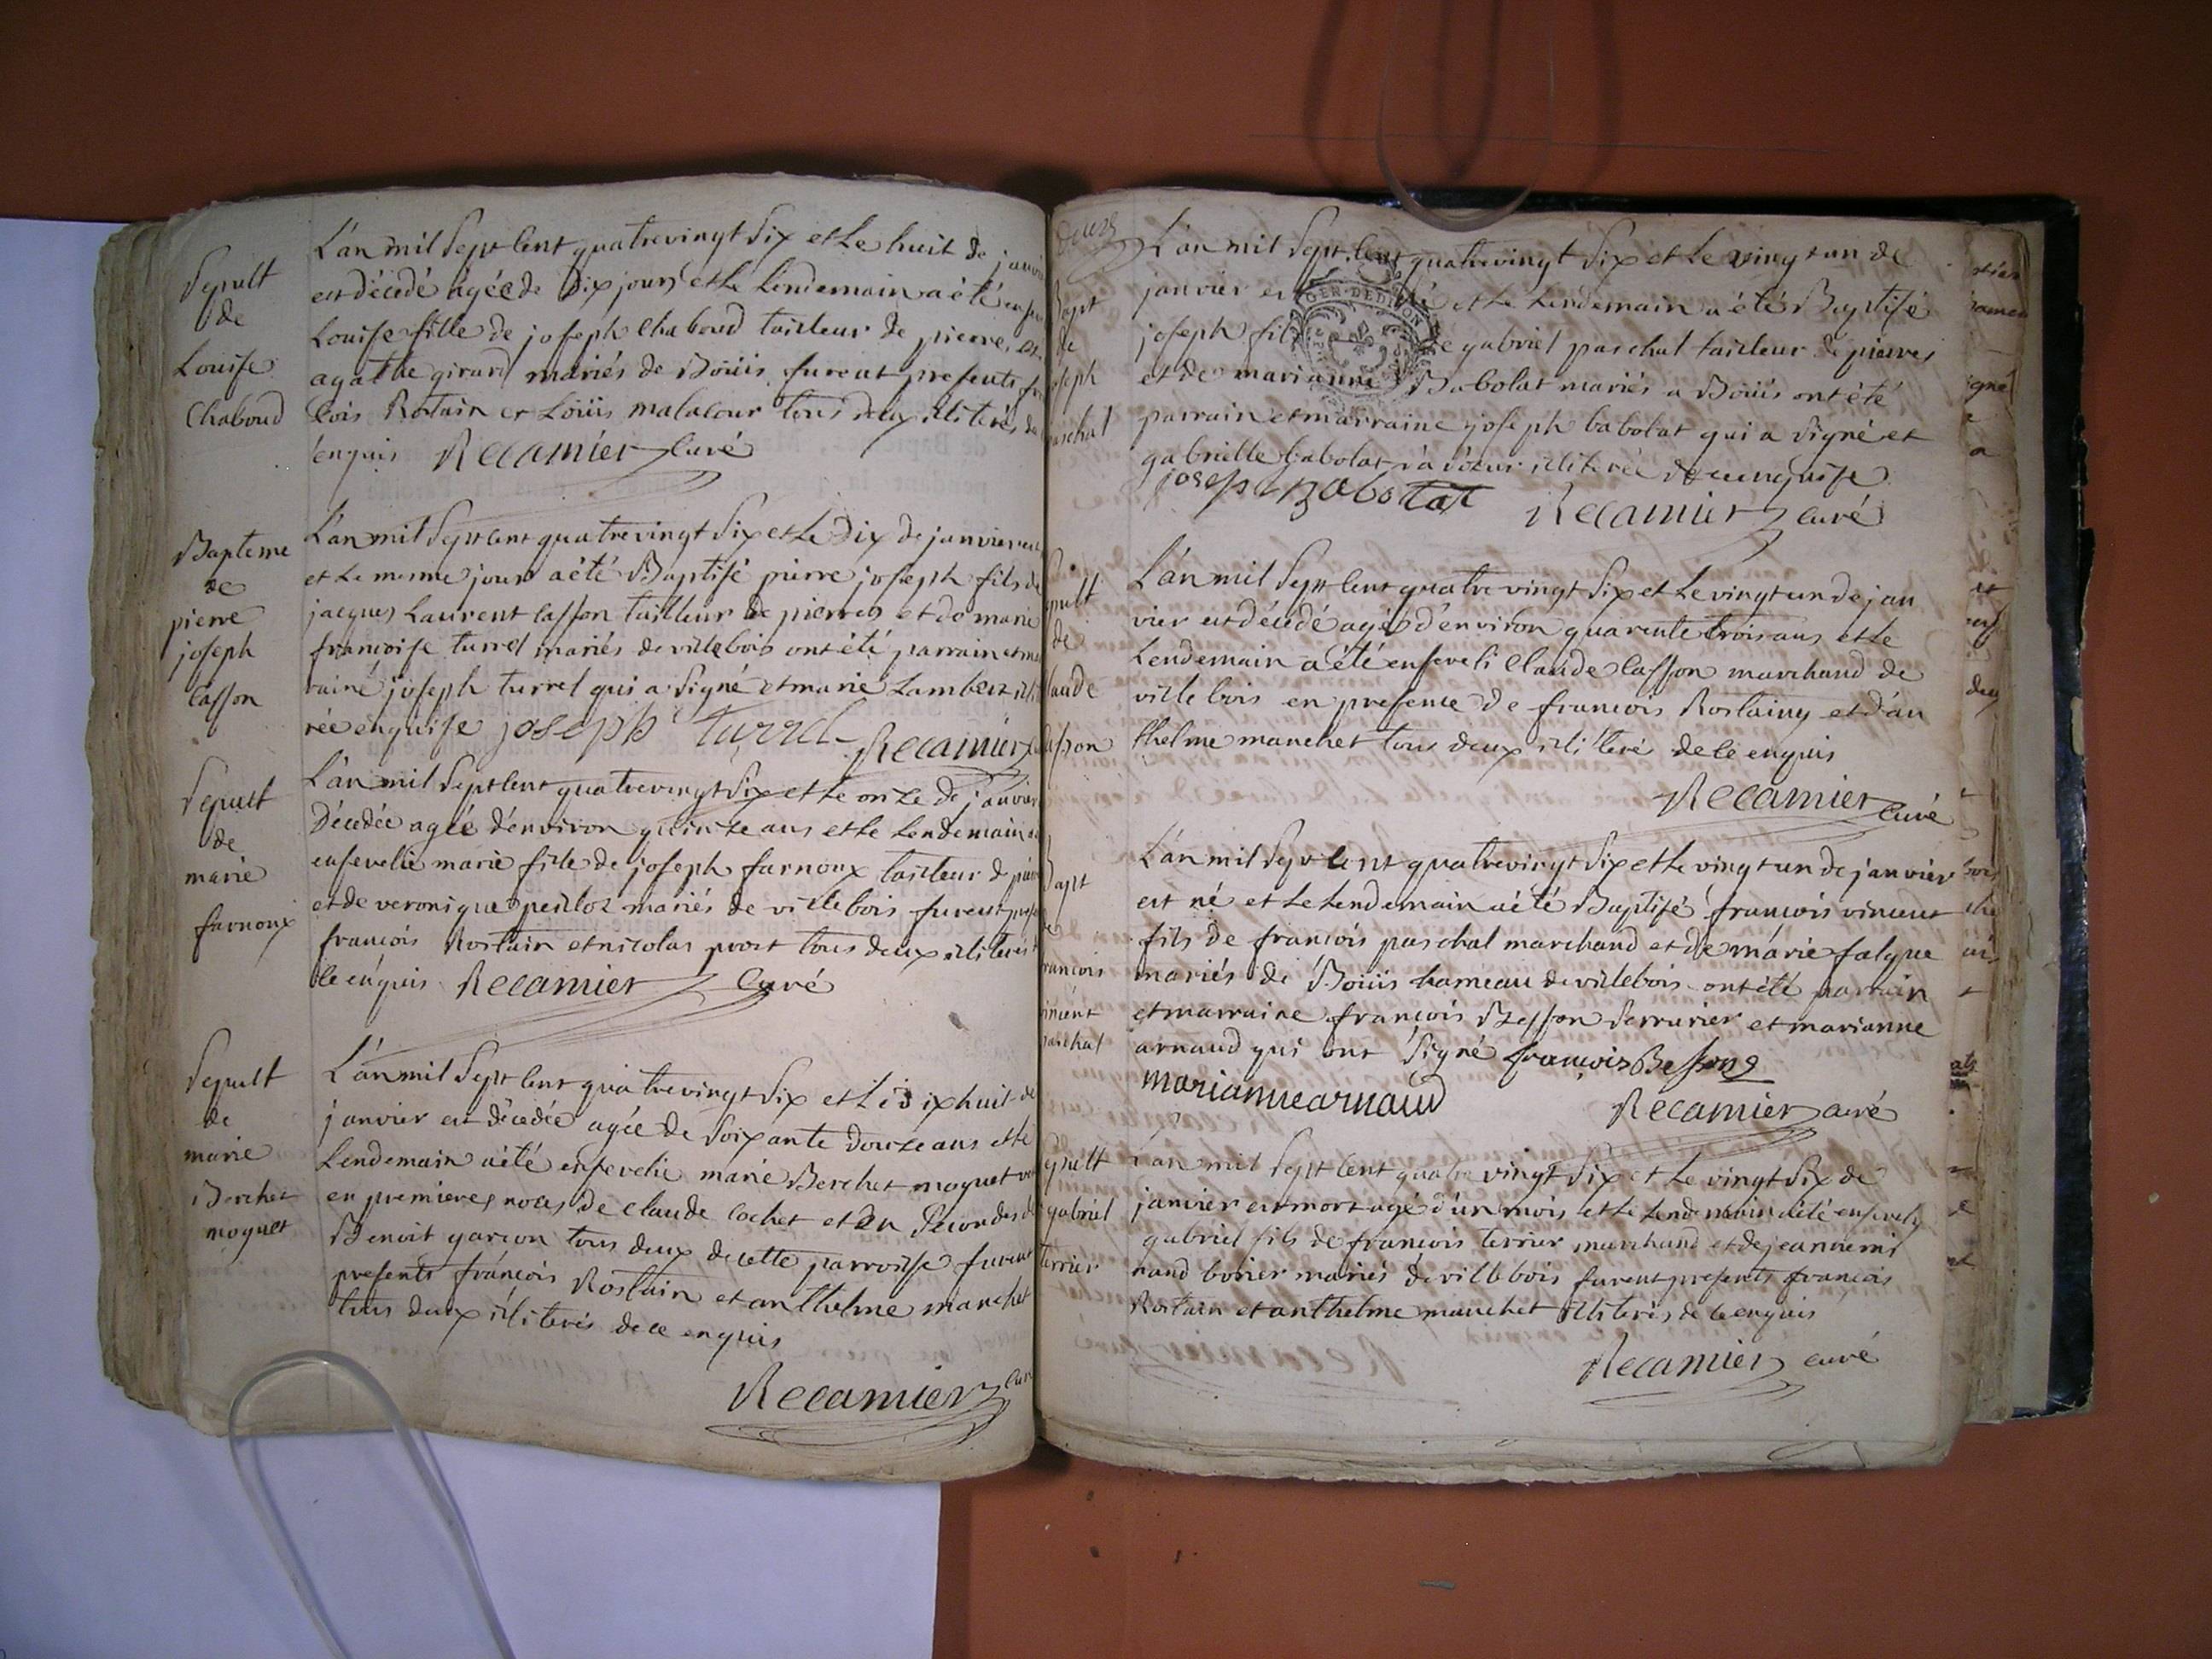 Sepult
de
Louise
Chaboud
L'an mil sept cent quatrevingt six et le huit de janvi
est décedé agée de dix jours et le lendemain a été ense
Louise fille de joseph Chaboud tailleur de pierre, et
agathe girard mariés de Boüis furent presents fr
çois Rostain et Loüis malacour tous deux illiterés de
enquis Recamier curé
Bapteme
de
pierre
joseph
Casson
L'an mil sept cent quatrevingt six et le dix de janvier
et le mesme jour a été Baptisé pierre joseph fils de
jacques Laurent Casson tailleur de pierres et de marie
françoise turrel mariés de villebois ont été parrain et ma
raine joseph turrel qui a signé et marie Lambert illi
rée enquise joseph turrel Recamier
Sepult
de
marie
farnoux
L'an mil sept cent quatrevingt six et le onze de janvier
décedée agée d'environ quinze ans et le lendemain a
ensevelie marie fille de joseph farnoux tailleur de pier
et de veronique peilloz mariés de villebois furent prese
françois Rostain et nicolas prost tous deux illiterés
de ce enquis Recamier curé
Sepult
de
marie
Berchet
moquet
L'an mil sept cent quatrevingt six et le dixhuit de
janvier est décedée agée de soixante douze ans et le
Lendemain a été ensevelie marie Berchet moquet
en premieres noces de claude cochet et en secondes de
Benoit garçon tous deux de cette parroisse furent
presents françois Rostain et anthelme manchet
tous deux illiterés de ce enquis
Recamier cur
deux
Bapt
de
oseph
aschal
L'an mil sept cent quatrevingt six et le vingt un de
janvier es et le lendemain a été Baptisé
joseph fil de gabriel paschal tailleur de pierres
et de marianne Babolat mariés a Boüis ont été
parrain et marraine joseph babolat qui a signé et
gabrielle babolat sa soeur illiterée de ce enquise
joseph Babolat Recamier curé
pult
de
laude
asson
L'an mil sept cent quatre vingt six et le vingt un de jan
vier est décedé agé d'environ quarente trois ans et le
Lendemain a été enseveli Claude Casson marchand de
villebois en presence de francois Rostaing et d'an
thelme manchet tous deux illiteré de ce enquis
Recamier curé
Bapt
de
rancois
incent
paschal
L'an mil sept cent quatrevingt six et le vingt un de janvier
est né et le lendemain a été Baptisé francois vincent
fils de francois paschal marchand et de marie falque
mariés de Boüis hameau de villebois ont été parrain
et marraine françois Besson serrurier et marianne
arnaud qui ont signé françois Besson
marianne arnaud
Recamier curé
epult
gabriel
terrier
L'an mil sept cent quatre vingt six et le vingt six de
janvier est mort agé d'un mois et le lendemain a été ensevely
gabriel fils de francois terrier marchand et de jeanne mi
naud borier mariés de villebois furent presents françois
Rostain et anthelme manchet illiterés de ce enquis
Recamier curé